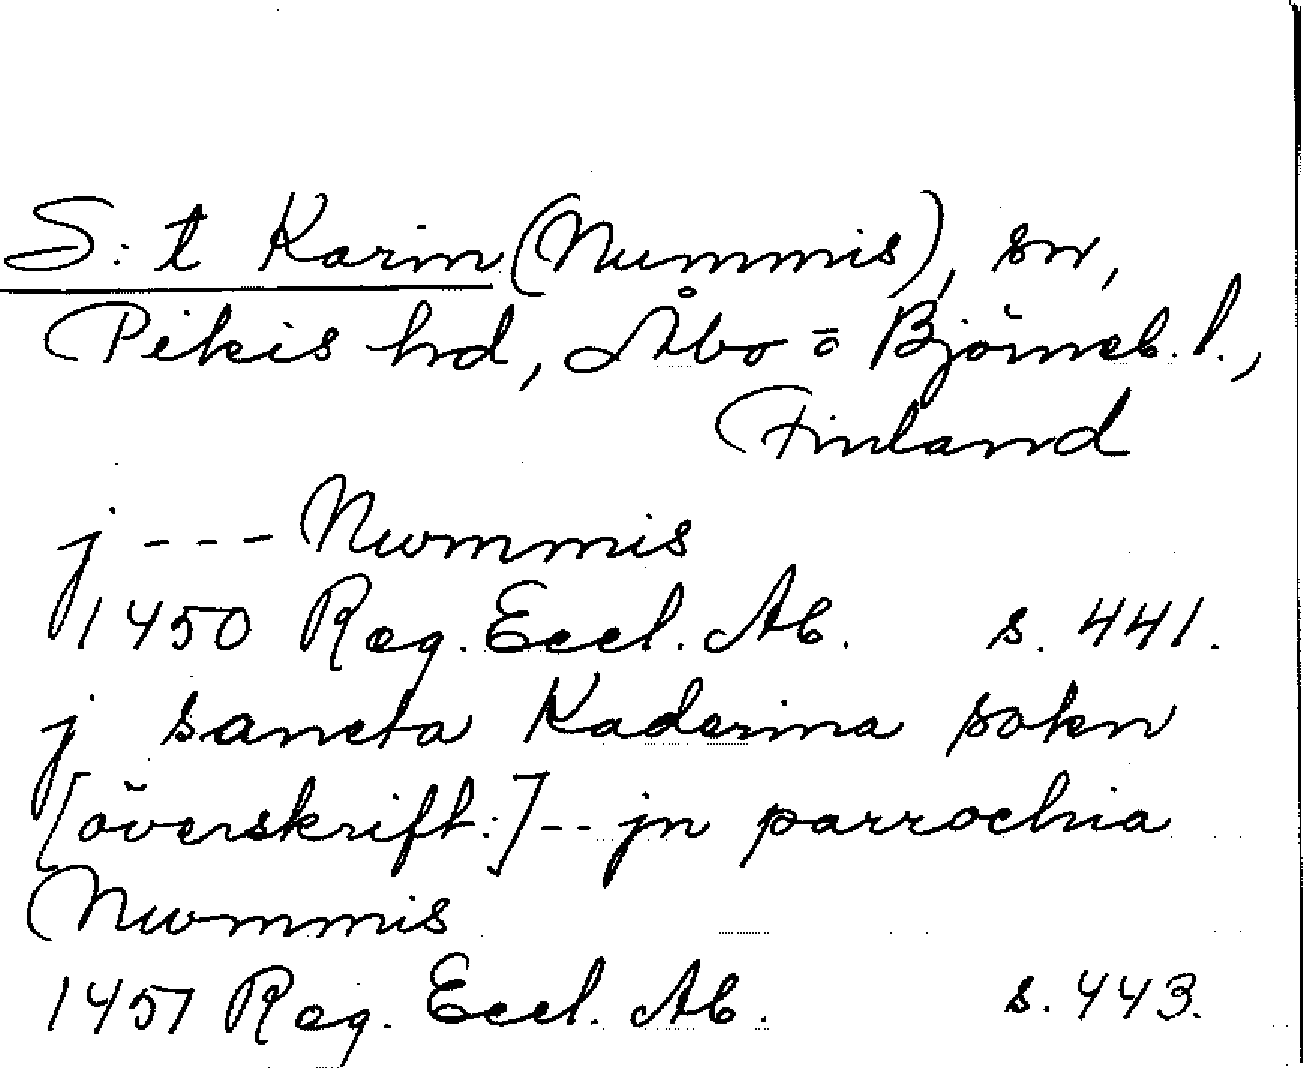 S:t Karin (Nummis), sn,
Pikis hd, Åbo = Björneb. l.,
Finland
j --- Nwmmis
1450 Reg. Eccl. Ab. s. 441.
j sancta Kaderina sokn
[överskrift:] -- jn parrochia
Nwmmis
1451 Reg. Eccl. Ab. s. 443.